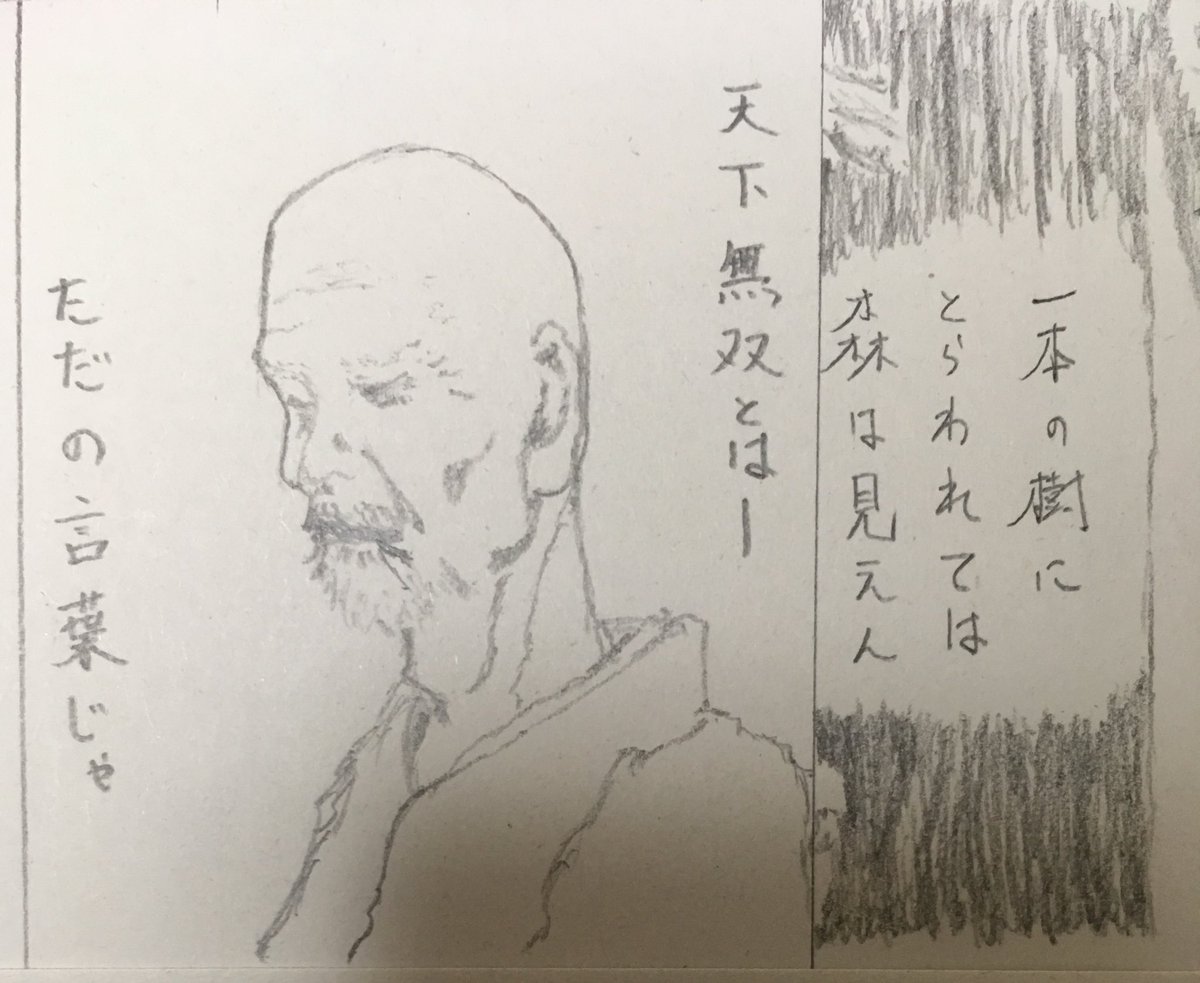 一本の樹に
とらわれては
森は見えん
天下無双とはー
ただの言葉じゃ